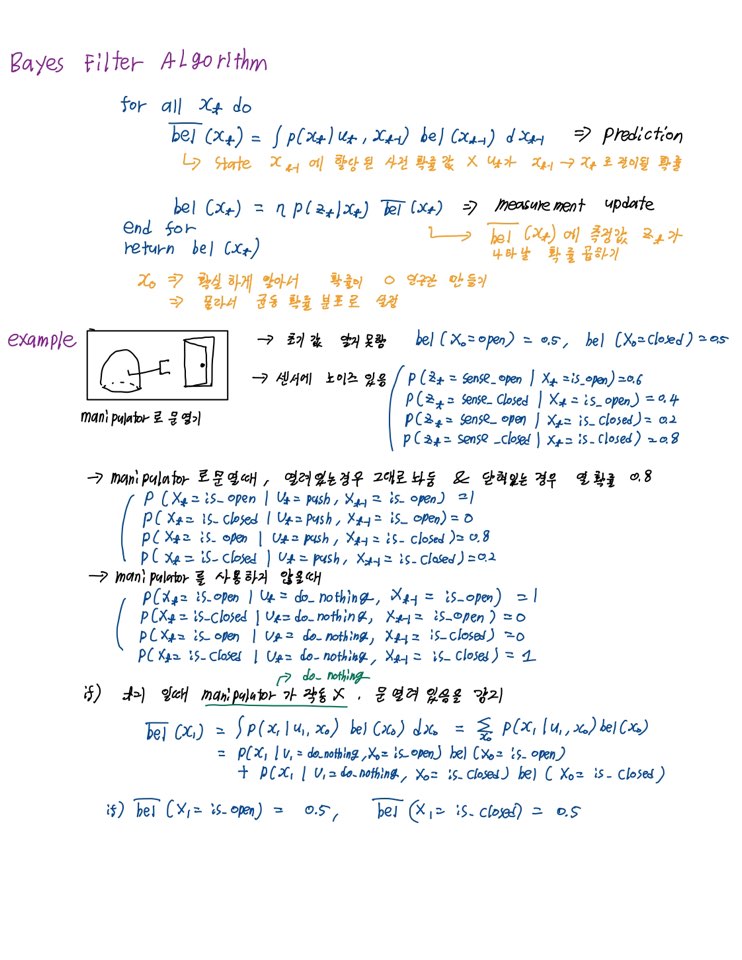 Bayes Filter Algorithm
for all x_t do
bel̅(x_t) = ∫ p(x_t | u_t, x_t-1) bel(x_t-1) dx_t-1 ⇒ prediction
↳ state x_t-1 에 할당된 사전 확률값 × u_t가 x_t-1 → x_t 로 전이될 확률
bel(x_t) = η p(z_t | x_t) bel̅(x_t) ⇒ measurement update
end for
↳ bel̅(x_t) 에 측정값 z_t가
return bel(x_t)
나타날 확률 곱하기
x_0 ⇒ 확실하게 알아서 확률이 0 인구간 만들기
⇒ 몰라서 균등 확률 분포로 설정
example
→ 초기값 알지못함 bel(X_0=open) = 0.5, bel(X_0=closed) = 0.5
→ 센서에 노이즈 있음
P(z_t = sense_open | X_t = is_open) = 0.6
P(z_t = sense_closed | X_t = is_open) = 0.4
P(z_t = sense_open | X_t = is_closed) = 0.2
P(z_t = sense_closed | X_t = is_closed) = 0.8
manipulator 로 문열기
→ manipulator 로 문열때, 열려있는경우 그대로 놔둠 & 닫혀있는 경우 열 확률 0.8
P(X_t = is_open | U_t = push, X_t-1 = is_open) = 1
P(X_t = is_closed | U_t = push, X_t-1 = is_open) = 0
P(X_t = is_open | U_t = push, X_t-1 = is_closed) = 0.8
P(X_t = is_closed | U_t = push, X_t-1 = is_closed) = 0.2
→ manipulator 를 사용하지 않을때
P(X_t = is_open | U_t = do_nothing, X_t-1 = is_open) = 1
P(X_t = is_closed | U_t = do_nothing, X_t-1 = is_open) = 0
P(X_t = is_open | U_t = do_nothing, X_t-1 = is_closed) = 0
P(X_t = is_closed | U_t = do_nothing, X_t-1 = is_closed) = 1
→ do_nothing
if) t=1 일때 manipulator 가 작동 X, 문 열려 있음을 감지
bel̅(x_1) = ∫ p(x_1 | u_1, x_0) bel(x_0) dx_0 = Σ_x_0 p(x_1 | u_1, x_0) bel(x_0)
= p(x_1 | U_1 = do_nothing, X_0 = is_open) bel(X_0 = is_open)
+ p(x_1 | U_1 = do_nothing, X_0 = is_closed) bel(X_0 = is_closed)
if) bel̅(X_1 = is_open) = 0.5, bel̅(X_1 = is_closed) = 0.5